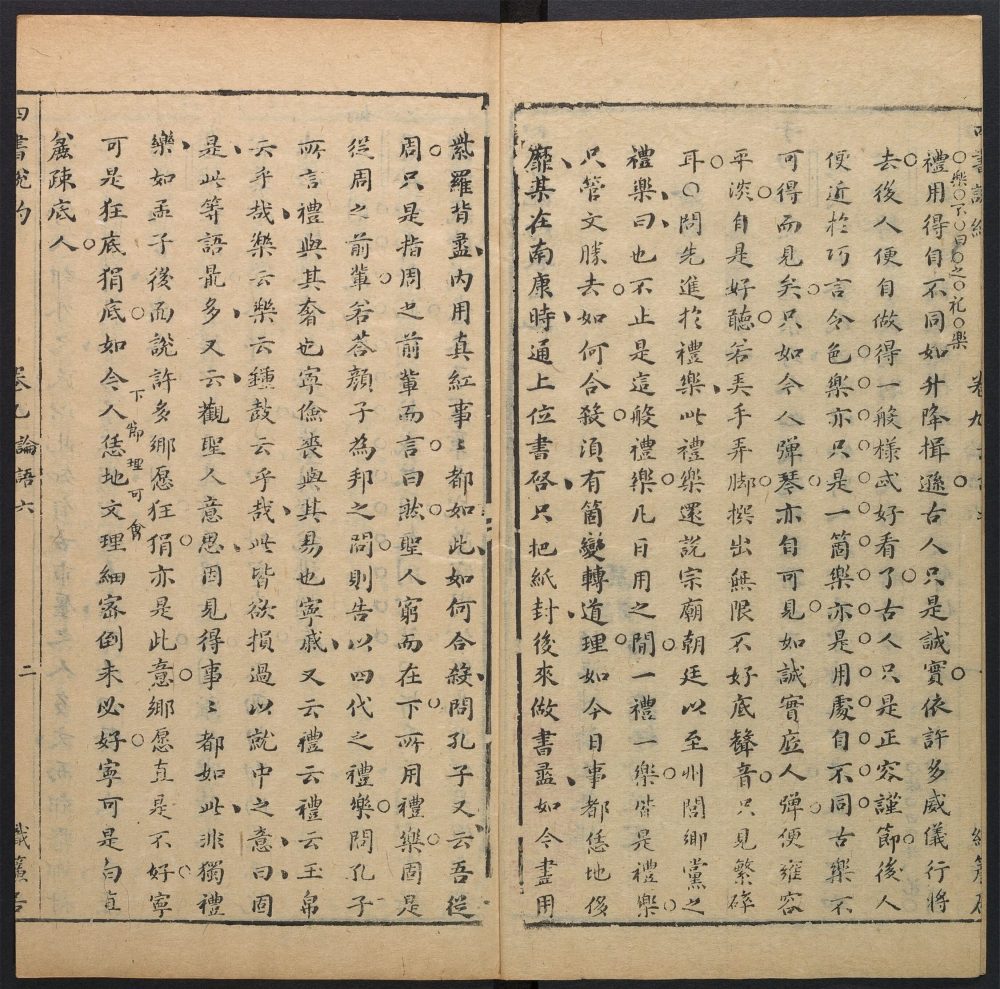 禮用得自不同如升降揖遜古人只是誠實依許多威儀行將
去後人便自做得一般樣忒好看了古人只是正容謹節後人
便近於巧言令色樂亦只是一箇樂亦是用處自不同古樂不
可得而見矣只如今人彈琴亦自可見如誠實底人彈便雍容
平淡自是好聽若弄手弄脚撰出無限不好底聲音只見繁碎
耳○問先進於禮樂此禮樂還說宗廟朝廷以至州閭鄉黨之
禮樂曰也不止是這般禮樂凡日用之間一禮一樂皆是禮樂
只管文勝去如何合殺須有箇變轉道理如今日事都恁地侈
靡某在南康時通上位書啓只把紙封後來做書盝如今盡用
紫羅背盝內用真紅事〻都如此如何合殺問孔子又云吾從
周只是指周之前輩而言曰然聖人窮而在下所用禮樂固是
從周之前輩若答顏子為邦之問則告以四代之禮樂問孔子
所言禮與其奢也寧儉喪與其易也寧戚又云禮云禮云玉帛
云乎哉樂云樂云鍾鼓云乎哉此皆欲損過以就中之意曰固
是此等語最多又云觀聖人意思因見得事〻都如此非獨禮
樂如孟子後而說許多鄉愿狂狷亦是此意鄉愿直是不好寧
可是狂底狷底如今人恁地文理細密倒未必好寧可是白直
下節理可會
麄疎底人
四書說約
卷九論語六
二
織簾居